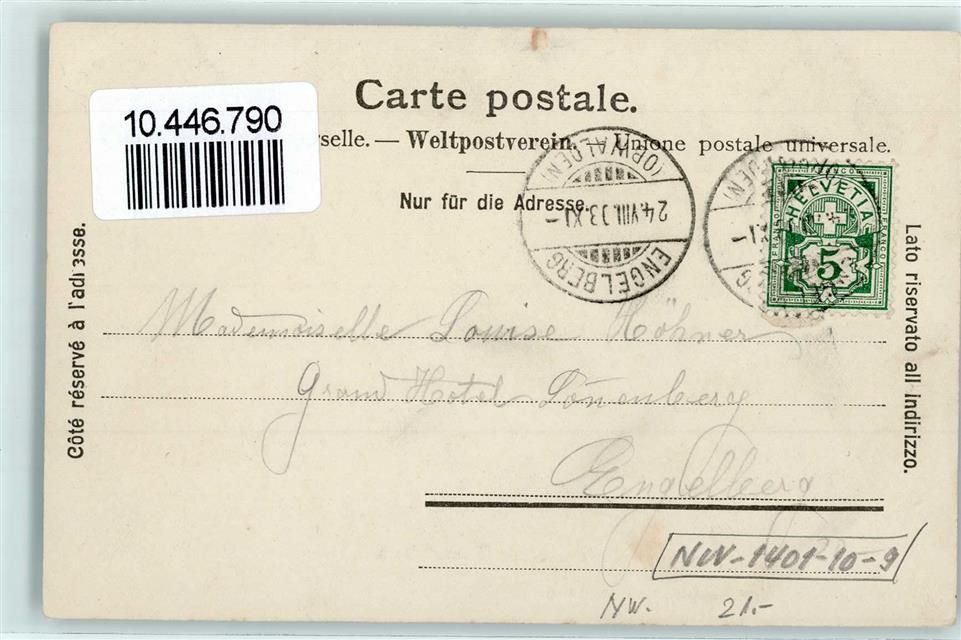 10.446.790
Carte postale.
rselle. — Weltpostverein. — Unione postale universale.
Nur für die Adresse.
Côté réservé à l'adresse.
Lato riservato all indirizzo.
ENGELBERG
24.VIII.03.XI–
(OBWALDEN)
XI–
FRANCO
HELVETIA
5
Mademoiselle Louise Höhner
Grand Hotel Sonnenberg
Engelberg
NW-1401-10-9
NW. 21.-